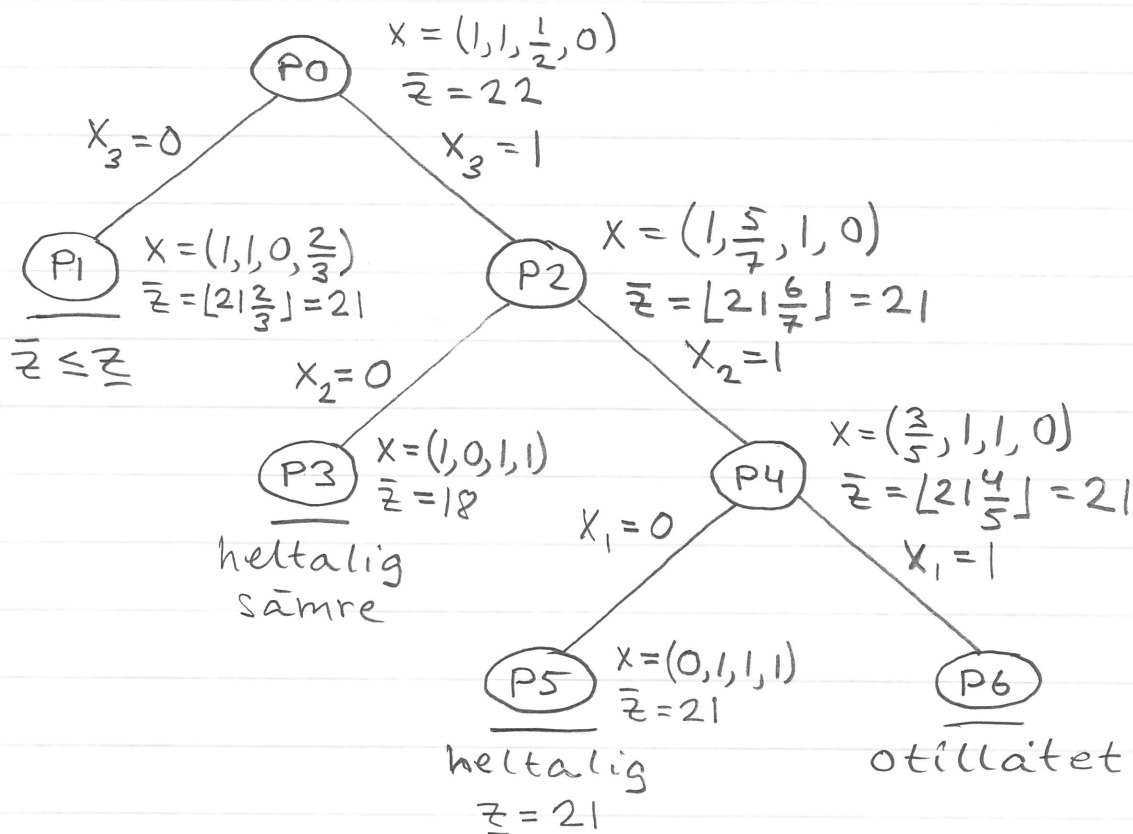 P0
x = (1, 1, 1/2, 0)
z̄ = 22
x₃ = 0
x₃ = 1
P1
x = (1, 1, 0, 2/3)
z̄ = ⌊21 2/3⌋ = 21
z̄ ≤ z̲
P2
x = (1, 5/7, 1, 0)
z̄ = ⌊21 6/7⌋ = 21
x₂ = 0
x₂ = 1
P3
x = (1, 0, 1, 1)
z̄ = 18
heltalig
sämre
P4
x = (3/5, 1, 1, 0)
z̄ = ⌊21 4/5⌋ = 21
x₁ = 0
x₁ = 1
P5
x = (0, 1, 1, 1)
z̄ = 21
heltalig
z̲ = 21
P6
otillåtet